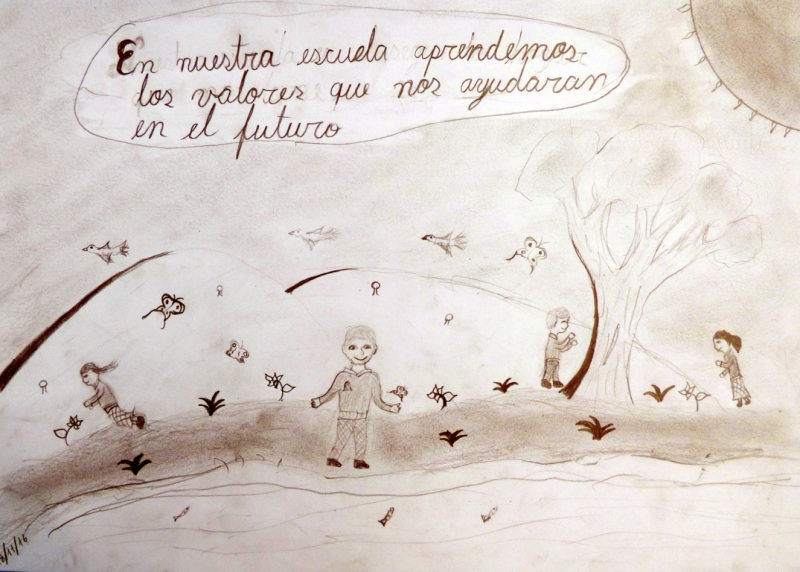 En nuestra escuela aprendemos
los valores que nos ayudaran
en el futuro